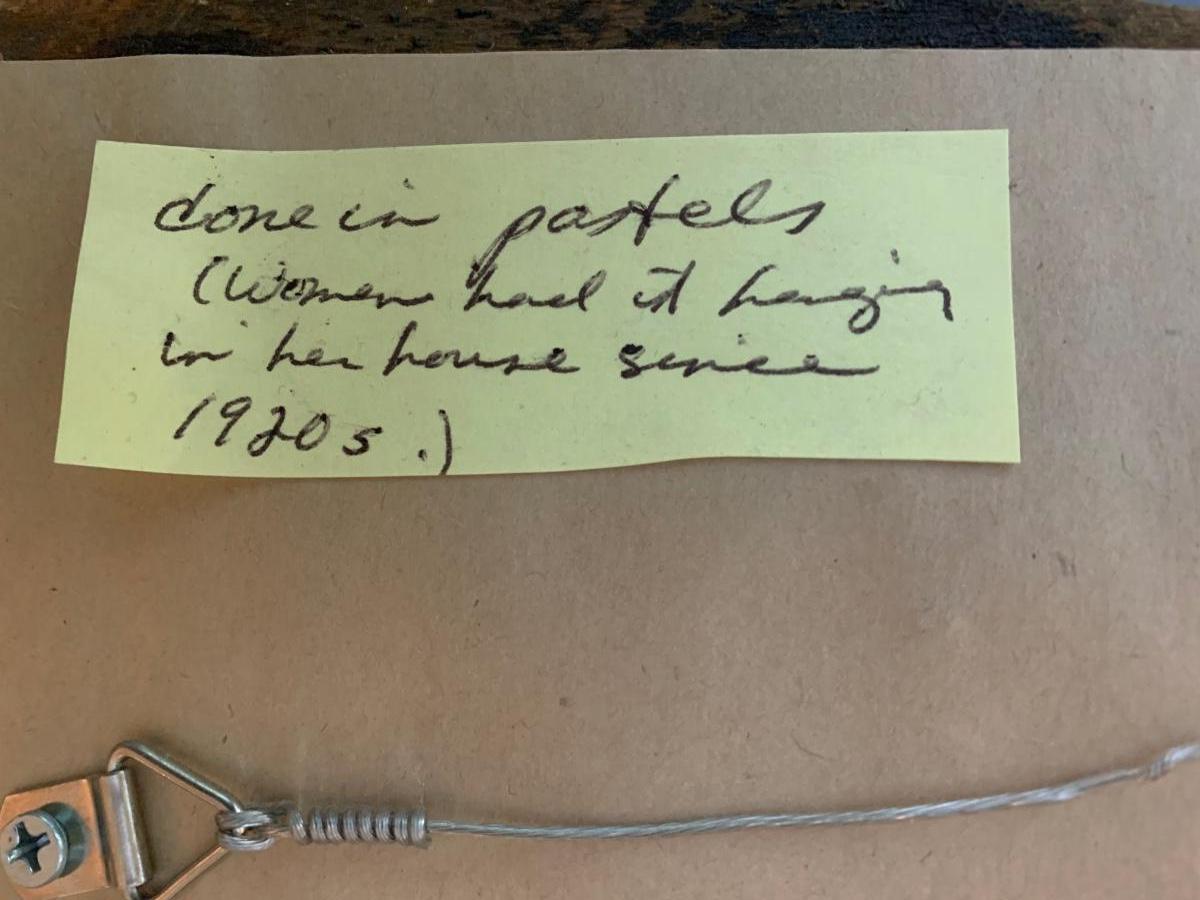 done in pastels
(Women had it hanging
in her house since
1920s.)